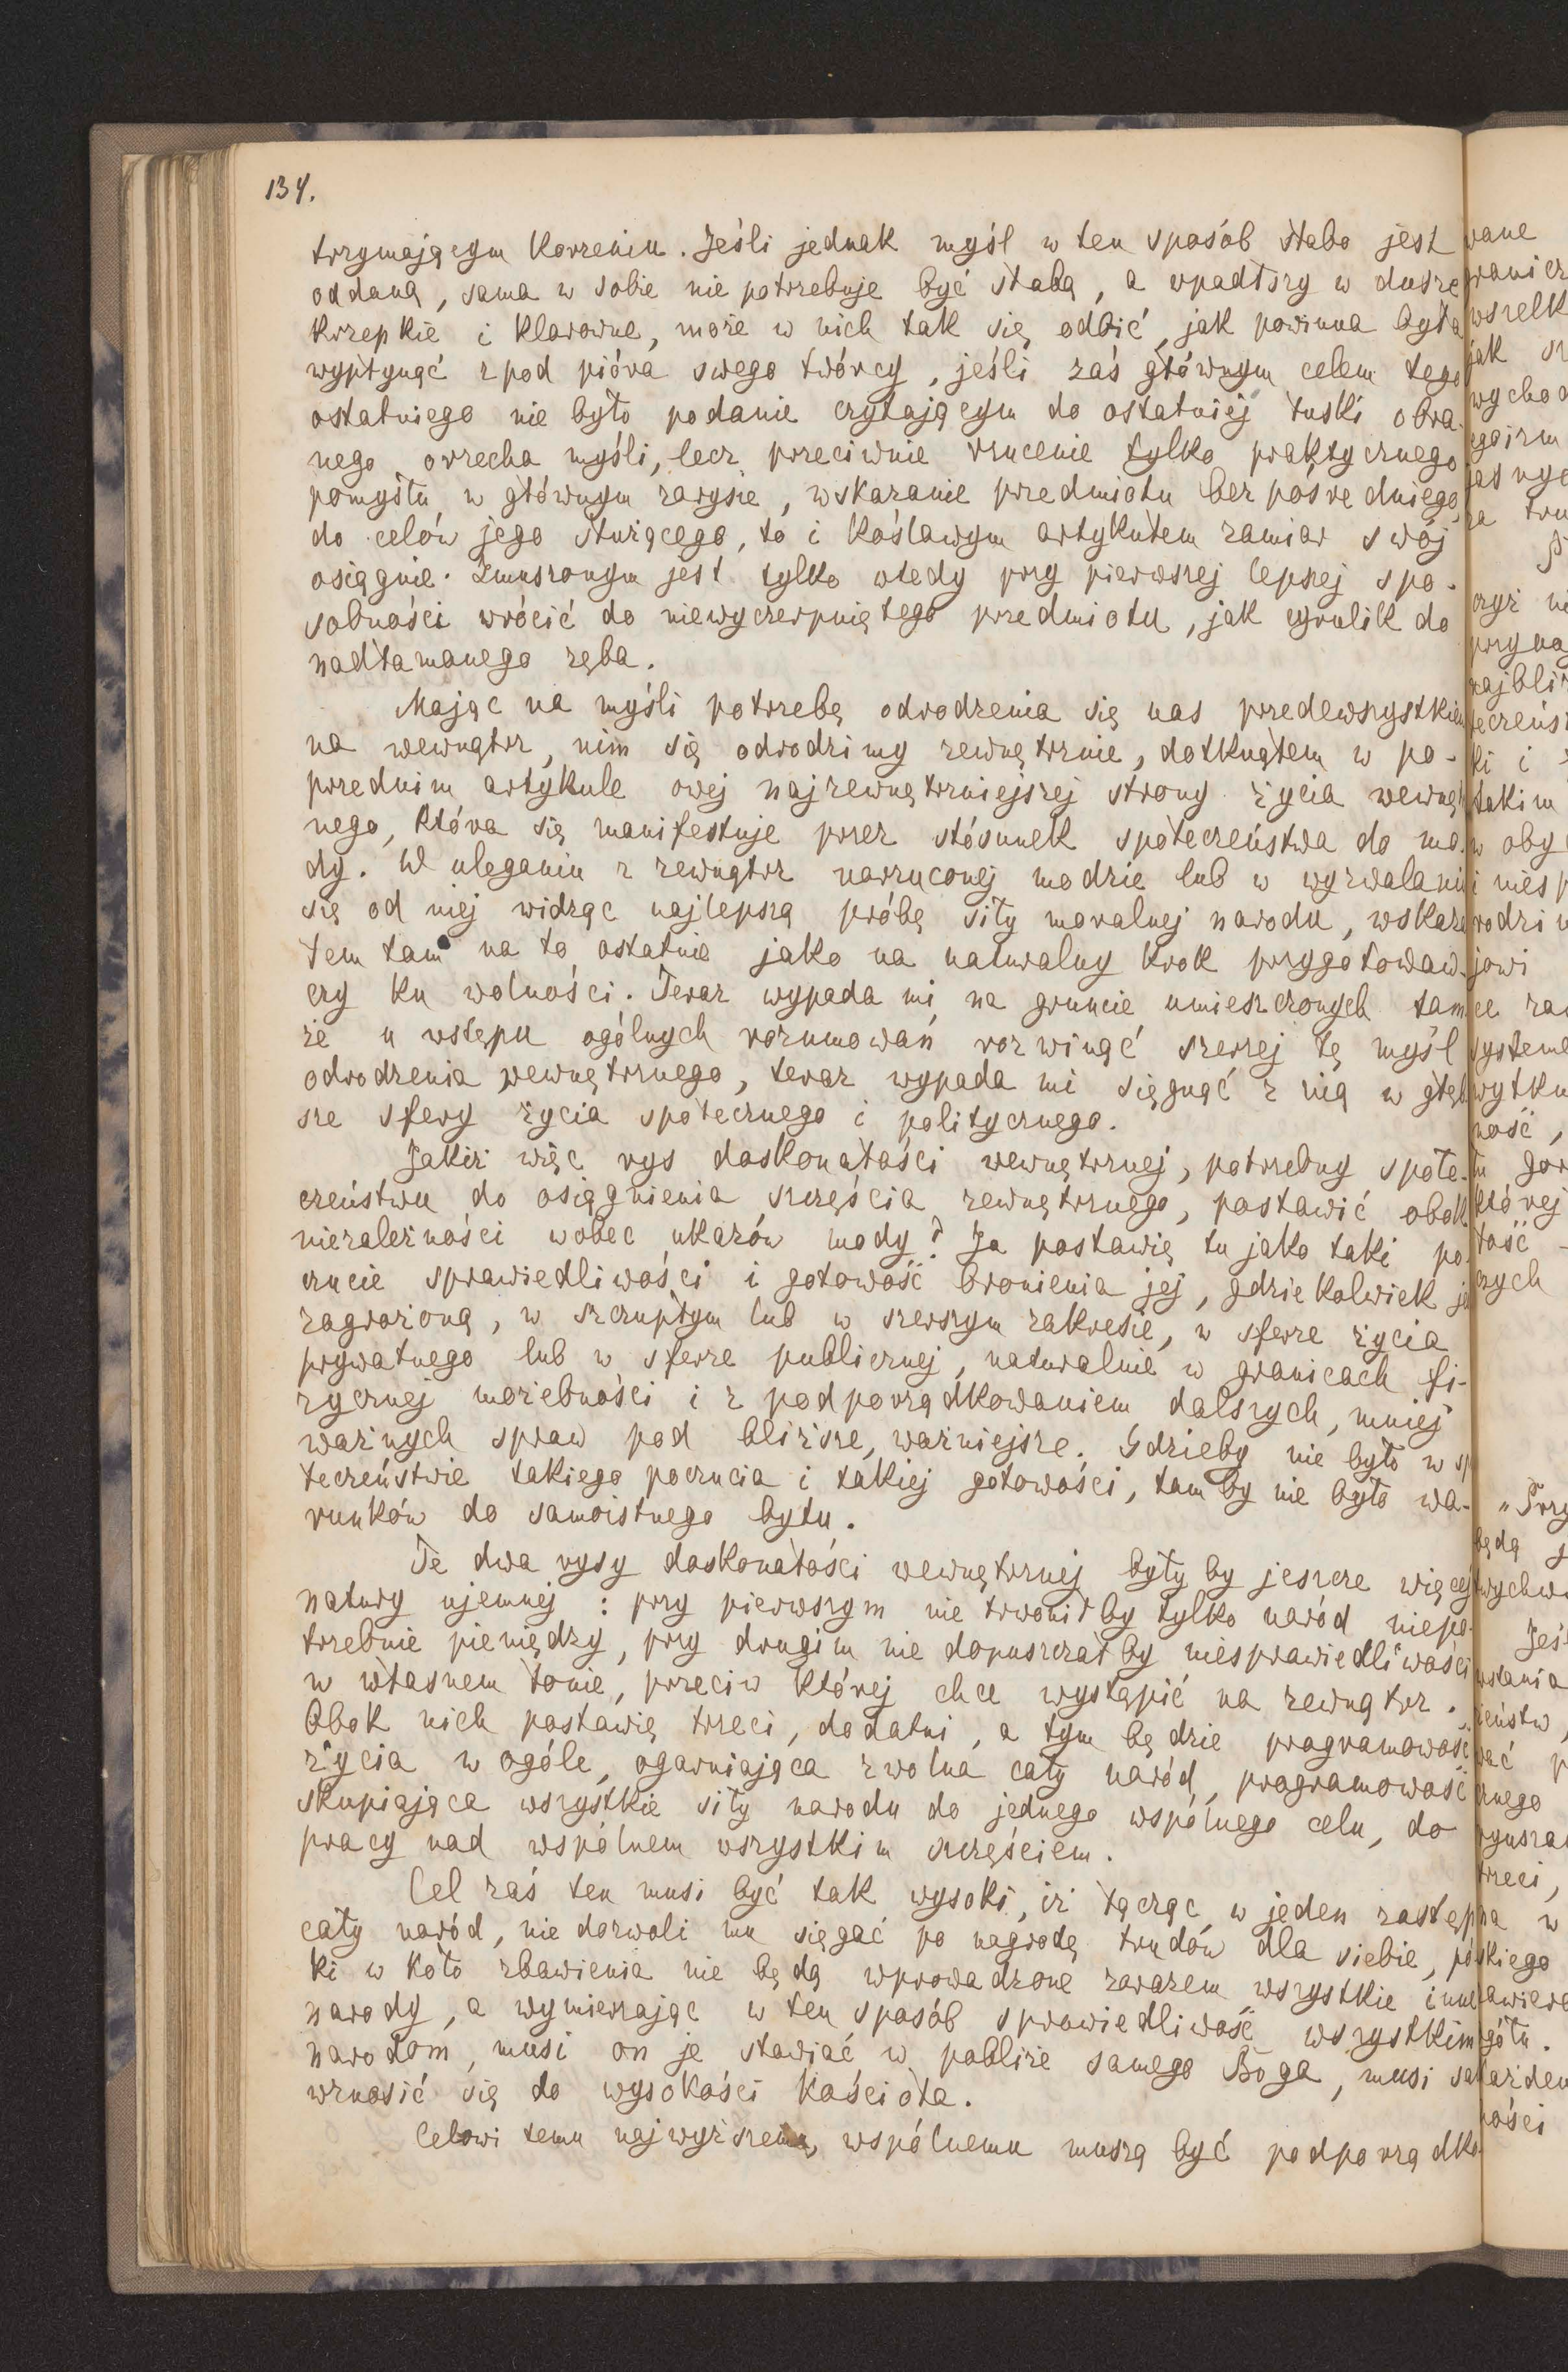 134.
trzymającym korzeniu. Jeśli jednak myśl w ten sposób słabo jest
oddaną, sama w sobie nie potrzebuje być słabą, a wpadłszy w dusze
krzepkie i klarowne, może w nich tak się odbić, jak powinna była
wypłynąć z pod pióra swego twórcy, jeśli zaś głównym celem tego
ostatniego nie było podanie czytającym do ostatniej łuski obra-
nego orzecha myśli, lecz przeciwnie rzucenie tylko praktycznego
pomysłu w głównym zarysie, wskazanie przedmiotu bezpośredniego,
do celów jego służącego, to i koślawym artykułem zamiar swój
osiągnie. Zmuszonym jest tylko wtedy przy pierwszej lepszej spo-
sobności wrócić do niewyczerpniętego przedmiotu, jak cyrulik do
nadłamanego zęba.
Mając na myśli potrzebę odrodzenia się nas przedewszystkiem
na wewnątrz, nim się odrodzimy zewnętrznie, dotknąłem w po-
przednim artykule owej najzewnętrzniejszej strony życia wewnętrz
nego, która się manifestuje przez stósunek społeczeństwa do mo-
dy. W uleganiu z zewnątrz narzuconej modzie lub w wyzwalaniu
się od niej widząc najlepszą próbę siły moralnej narodu, wskaza
łem tam na to ostatnie jako na naturalny krok przygotowaw-
czy ku wolności. Teraz wypada mi na gruncie umieszczonych tam
że u wstępu ogólnych rozumowań rozwinąć szerzej tę myśl
odrodzenia wewnętrznego, teraz wypada mi sięgnąć z nią w głęb
sze sfery życia społecznego i politycznego.
Jakiż więc rys doskonałości wewnętrznej, potrzebny społe-
czeństwu do osiągnienia szczęścia zewnętrznego, postawić obok
niezależności wobec ukazów mody? Ja postawię tu jako taki po-
czucie sprawiedliwości i gotowość bronienia jej, gdziekolwiek je
zagrożoną, w szczupłym lub w szerszym zakresie, w sferze życia
prywatnego lub w sferze publicznej, naturalnie w granicach fi-
zycznej możebności i z podporządkowaniem dalszych, mniej
ważnych spraw pod bliższe, ważniejsze. Gdzieby nie było w sp
łeczeństwie takiego poczucia i takiej gotowości, tam by nie było wa-
runków do samoistnego bytu.
Te dwa rysy doskonałości wewnętrznej byłyby jeszcze więcej
natury ujemnej: przy pierwszym nie trwonił by tylko naród niepo-
trzebnie pieniędzy, przy drugim nie dopuszczał by niesprawiedliwości
w własnem łonie, przeciw której chce wystąpić na zewnątrz.
Obok nich postawię trzeci, dodatni, a tym będzie programowość
życia w ogóle, ogarniająca zwolna cały naród, programowość
skupiająca wszystkie siły narodu do jednego wspólnego celu, do
pracy nad wspólnem wszystkim szczęściem.
Cel zaś ten musi być tak wysoki, iż łącząc w jeden zastęp
cały naród, nie dozwoli mu sięgać po nagrodę trudów dla siebie, pó
ki w koło zbawienia nie będą wprowadzone zarazem wszystkie inne
narody, a wymierzając w ten sposób sprawiedliwość wszystkim
narodom, musi on je stawiać w pobliże samego Boga, musi sa
wznosić się do wysokości kościoła.
Celowi temu najwyższemu, wspólnemu muszą być podporządko-